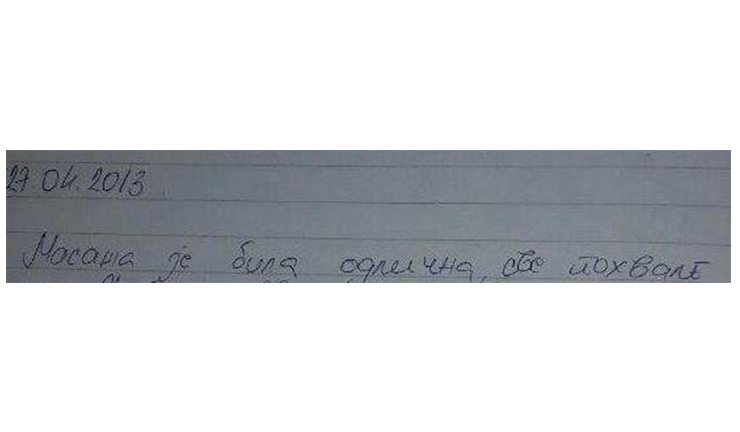 27.04.2013
Масажа је била одлична, све похвале